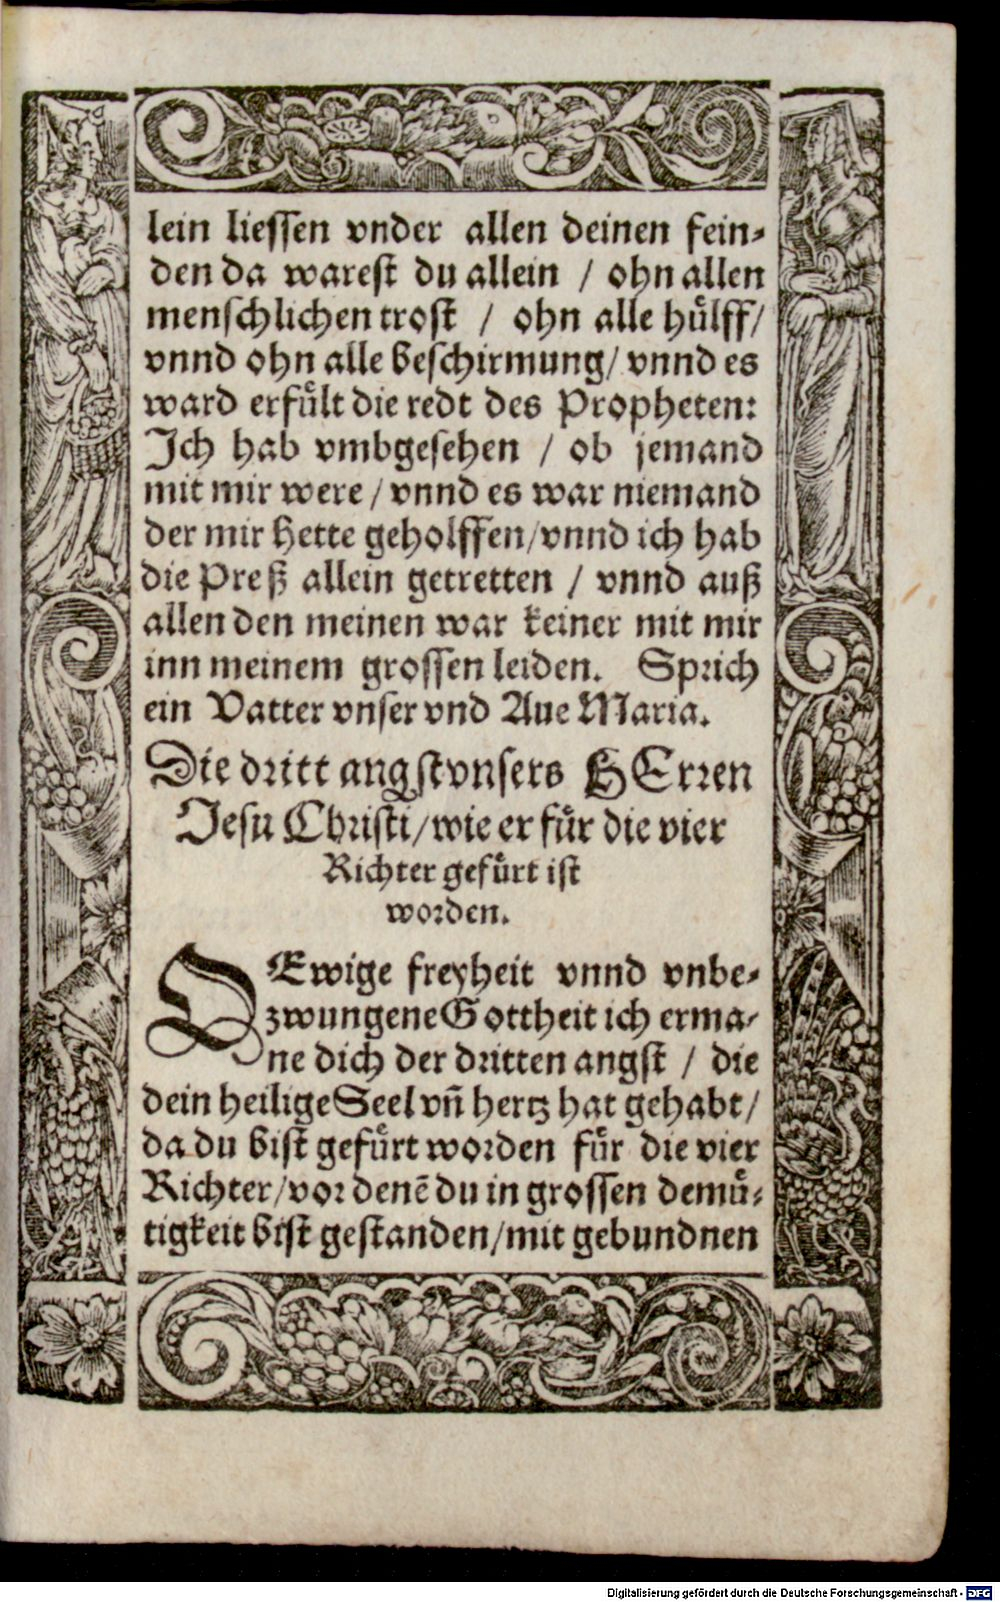 lein liessen vnder allen deinen fein-
den da warest du allein / ohn allen
menschlichen trost / ohn alle huͤlff/
vnnd ohn alle beschirmung/ vnnd es
ward erfuͤlt die redt des Propheten:
Ich hab vmbgesehen / ob jemand
mit mir were / vnnd es war niemand
der mir hette geholffen/vnnd ich hab
die Preß allein getretten / vnnd auß
allen den meinen war keiner mit mir
inn meinem grossen leiden. Sprich
ein Vatter vnser vnd Aue Maria.
Die dritt angst vnsers HErren
Jesu Christi/wie er fuͤr die vier
Richter gefuͤrt ist
worden.
O Ewige freyheit vnnd vnbe-
zwungene Gottheit ich erma-
ne dich der dritten angst / die
dein heilige Seel vñ hertz hat gehabt/
da du bist gefuͤrt worden fuͤr die vier
Richter/vor denē du in grossen demuͤ-
tigkeit bist gestanden/mit gebundnen
Digitalisierung gefördert durch die Deutsche Forschungsgemeinschaft - DFG